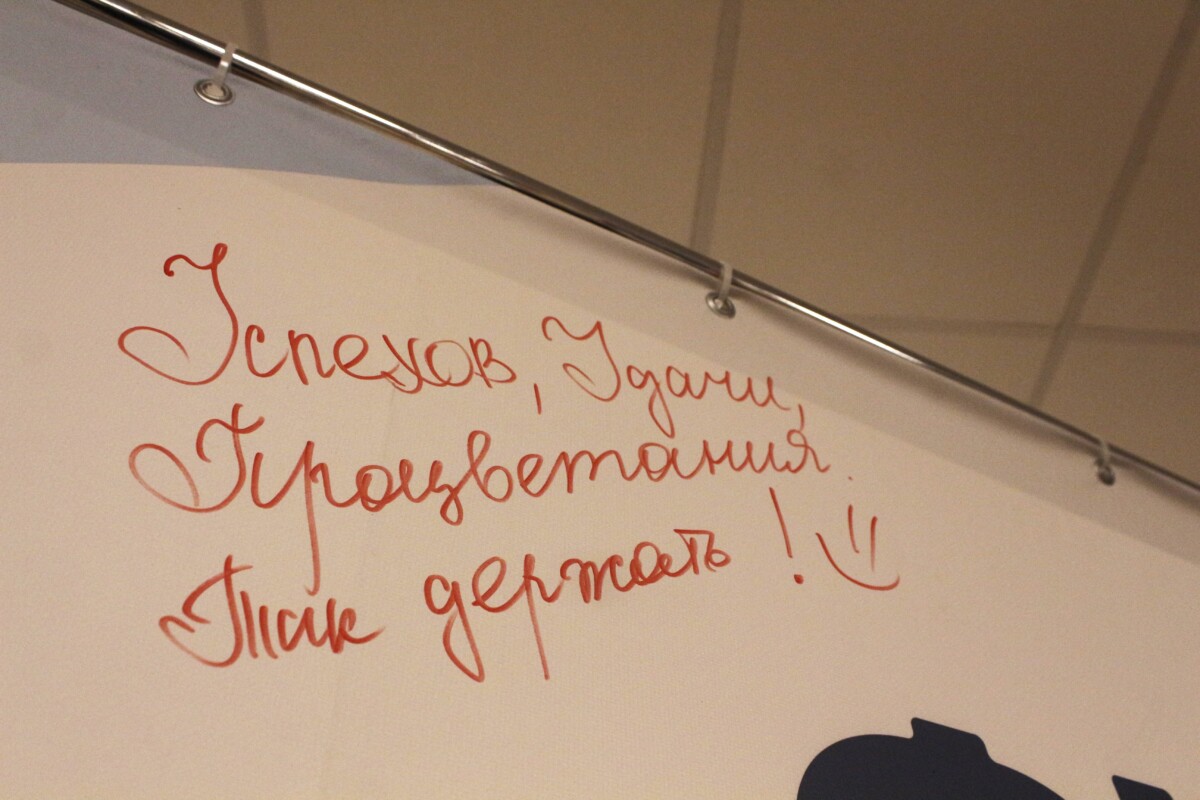 Успехов, Удачи,
Процветания.
Так держать ! =)